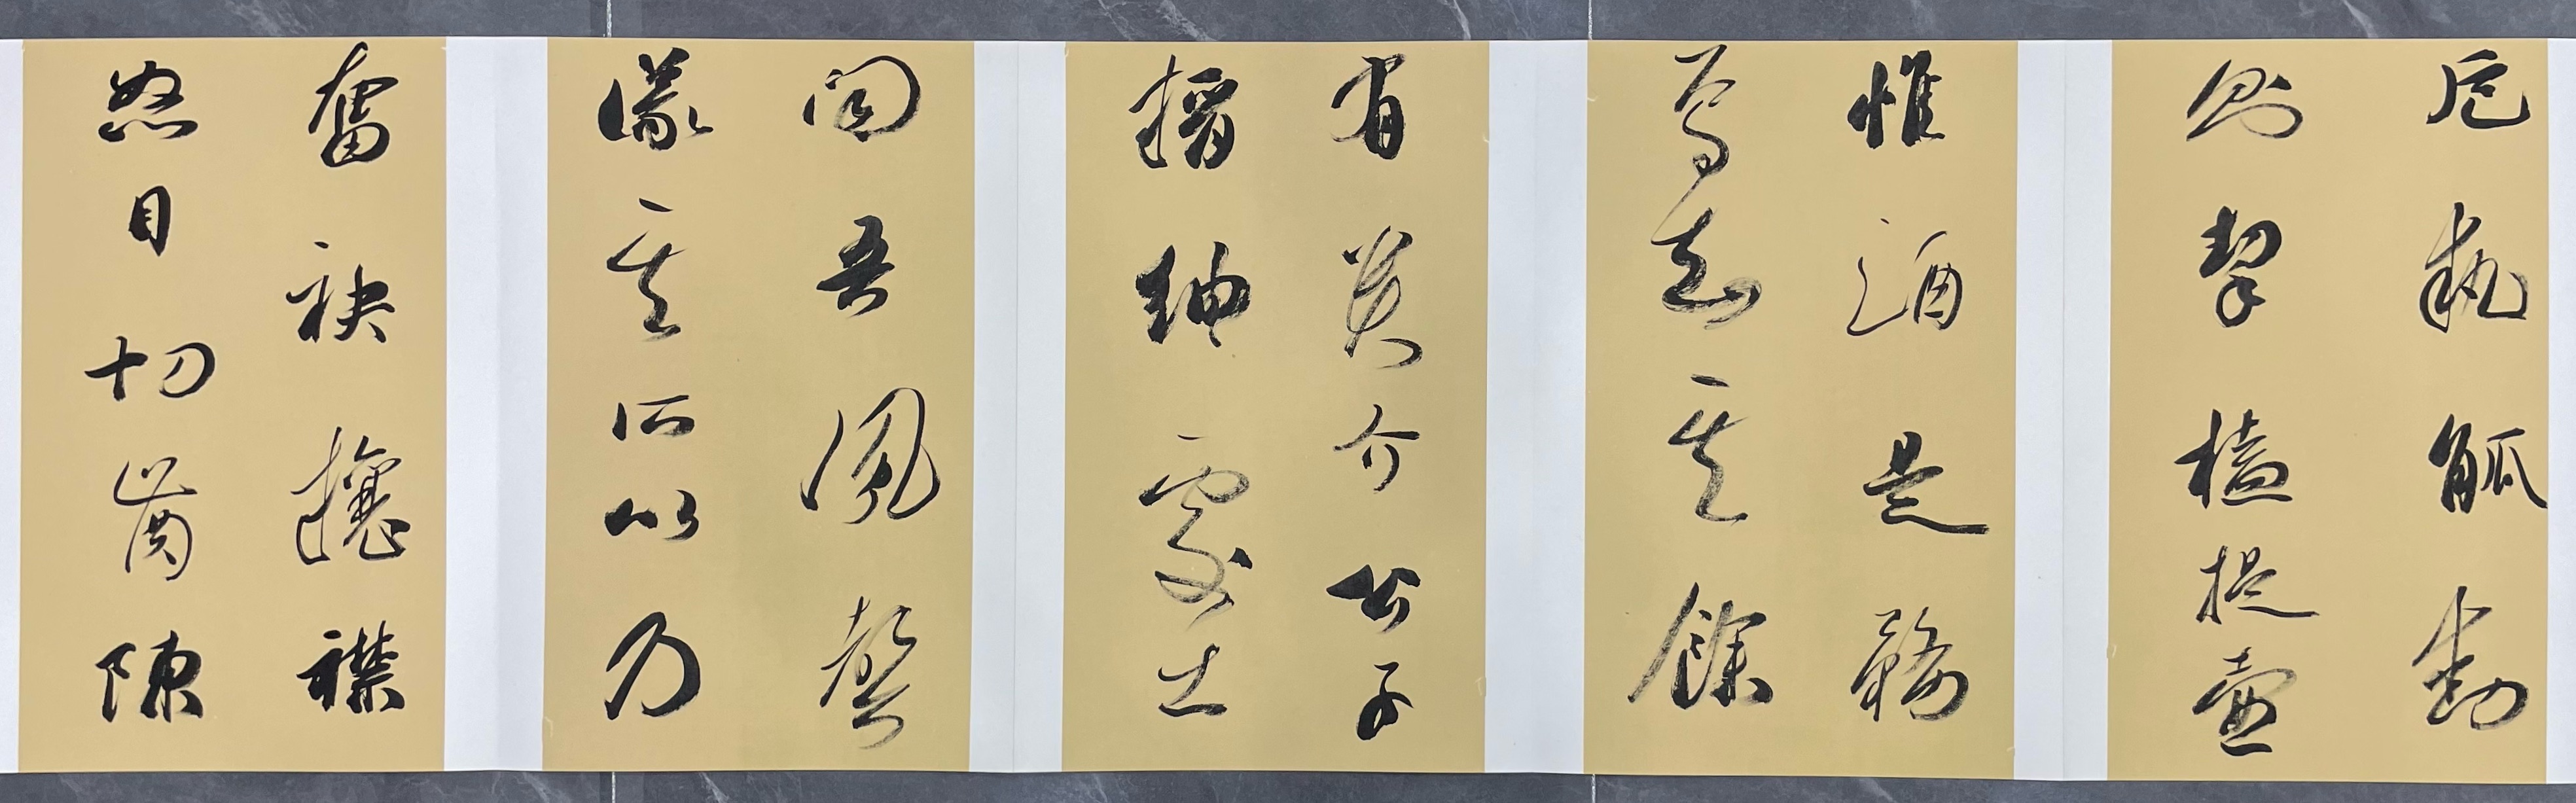 卮執觚動
則挈榼提壺
惟酒是務
焉知其餘
有貴介公子
搢紳處士
聞吾風聲
議其所以乃
奮袂攘襟
怒目切齒陳